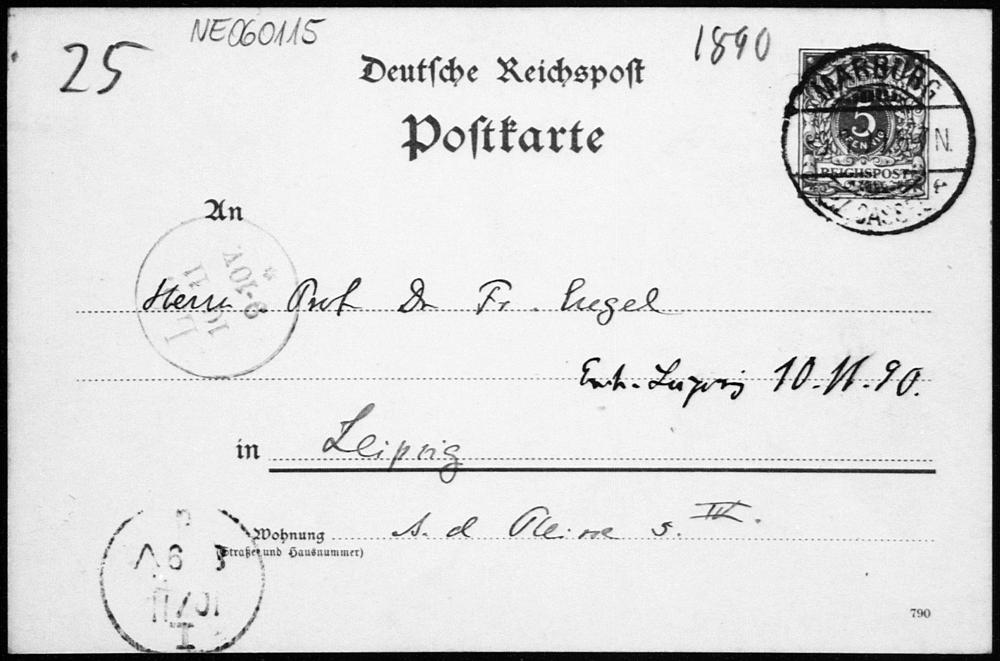 NE060115
25
1890
Deutsche Reichspost
Postkarte
MARBURG
5
PFENNIG
REICHSPOST
N.
CASSEL
An
9-10V
Herrn Prof Dr Fr. Engel
10.11.90.
in Leipzig
Wohnung A. d Pleisse 5. IV.
(Straße und Hausnummer)
9 V
10/11
I
790